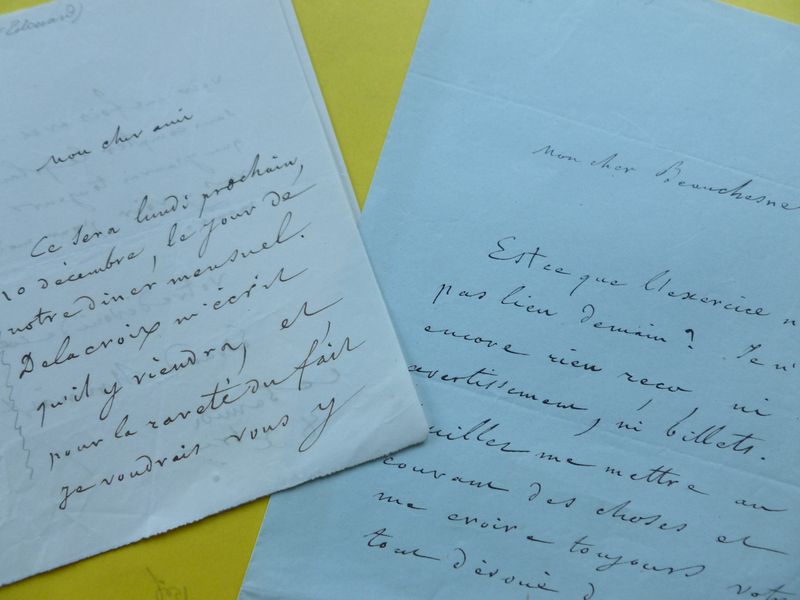 Edouard)
mon cher ami
Ce sera lundi prochain,
10 décembre, le jour de
notre diner mensuel.
Delacroix m'écrit
qu'il y viendra, et
pour la rareté du fait
je voudrais vous y
mon cher Beauchesne
Est ce que l'exercice n
pas lieu demain? Je n'
encore rien reçu ni
avertissement, ni billets.
uillez me mettre au
courant des choses et
me croire toujours votre
tout dévoué